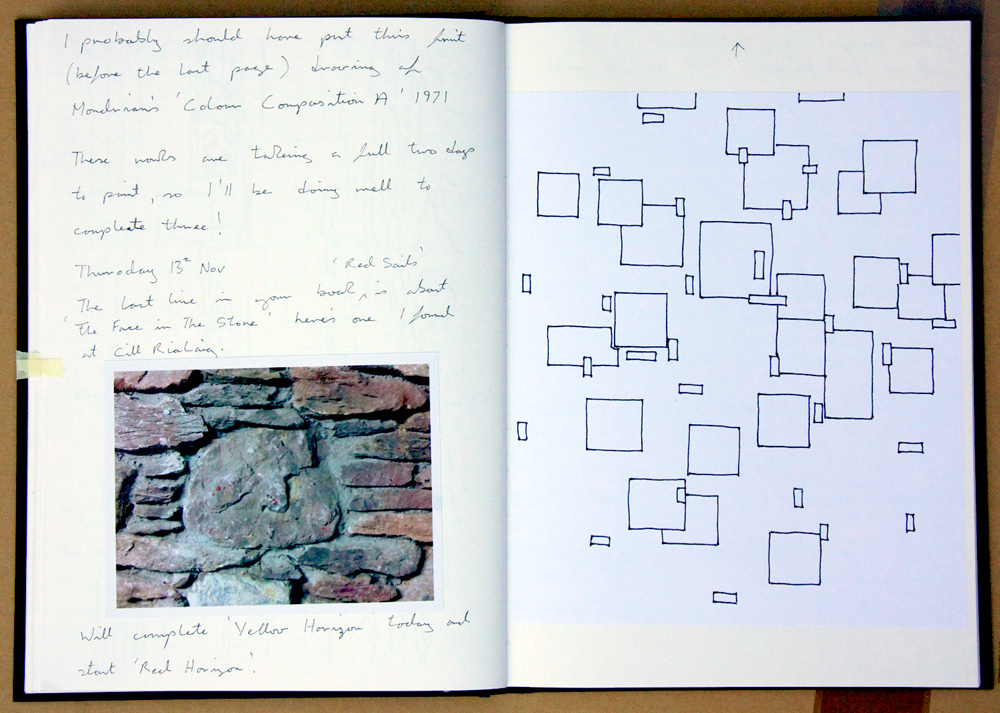 I probably should have put this first
(before the last page) drawing of
Mondrian's 'Colour Composition A' 1971
These works are taking a full two days
to paint, so I'll be doing well to
compleate three!
Thursday 13th Nov 'Red Sails'
The last line in your book, is about
'The Face in The Stone' here's one I found
at Cill Rialaig.
Will complete 'Yellow Horizon' today and
start 'Red Horizon'.